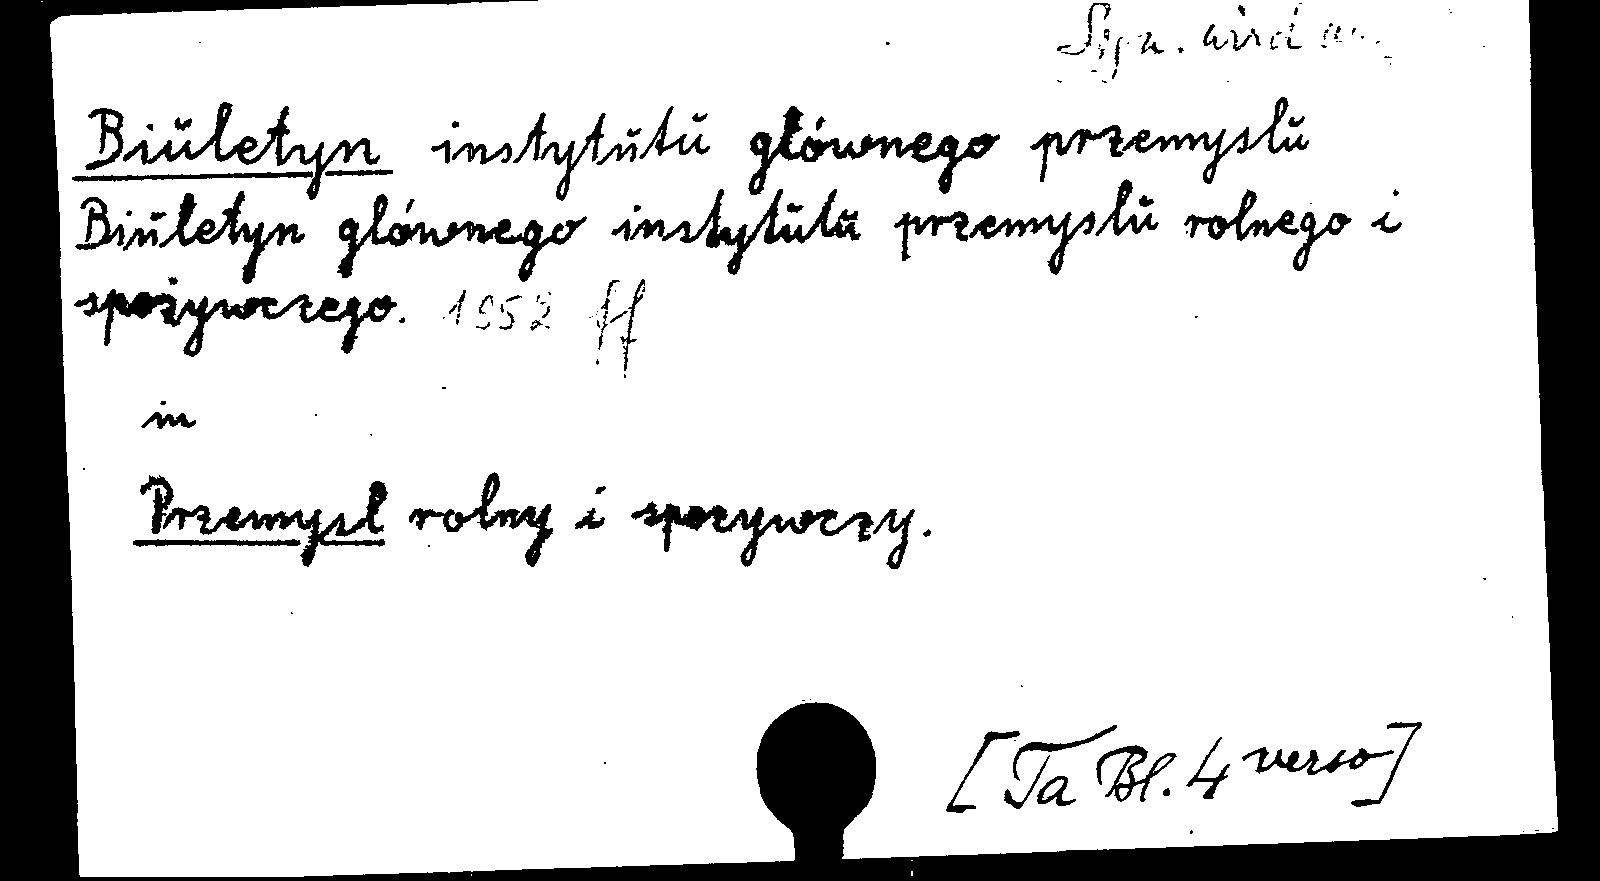 wird
Biuletyn instytutu głównego przemyslu
Biuletyn glównego instytutu przemyslu rolnego i
spożywczego. 1952 ff
in
Przemysl rolny i spozywczy.
[Ta Bl. 4 verso]